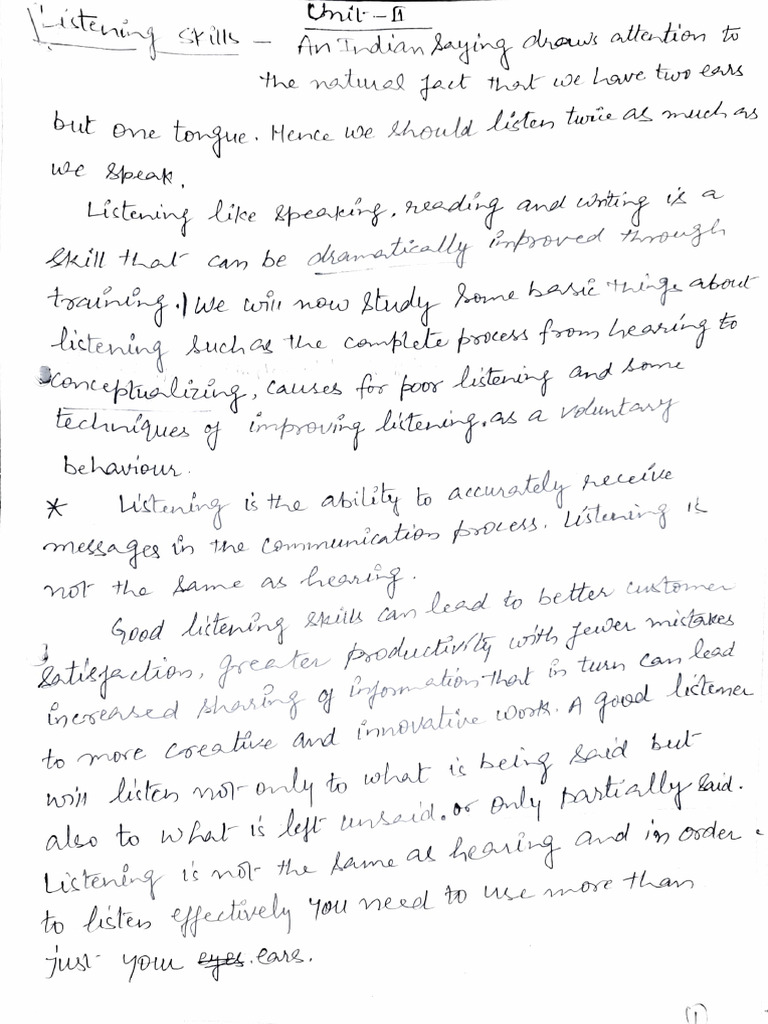 Unit-II
Listening Skills - An Indian Saying draws attention to
the natural fact that we have two ears
but one tongue. Hence we should listen twice as much as
we speak.
Listening like speaking, reading and writing is a
skill that can be dramatically improved through
training. We will now study some basic things about
listening such as the complete process from hearing to
conceptualizing, causes for poor listening and some
techniques of improving listening, as a voluntary
behaviour.
* Listening is the ability to accurately receive
messages in the communication process. Listening is
not the same as hearing.
Good listening skills can lead to better customer
satisfaction, greater productivity with fewer mistakes
increased sharing of information that in turn can lead
to more creative and innovative work. A good listener
will listen not only to what is being said but
also to what is left unsaid. or only partially said.
Listening is not the same as hearing and in order
to listen effectively you need to use more than
just your eyes. ears.
1